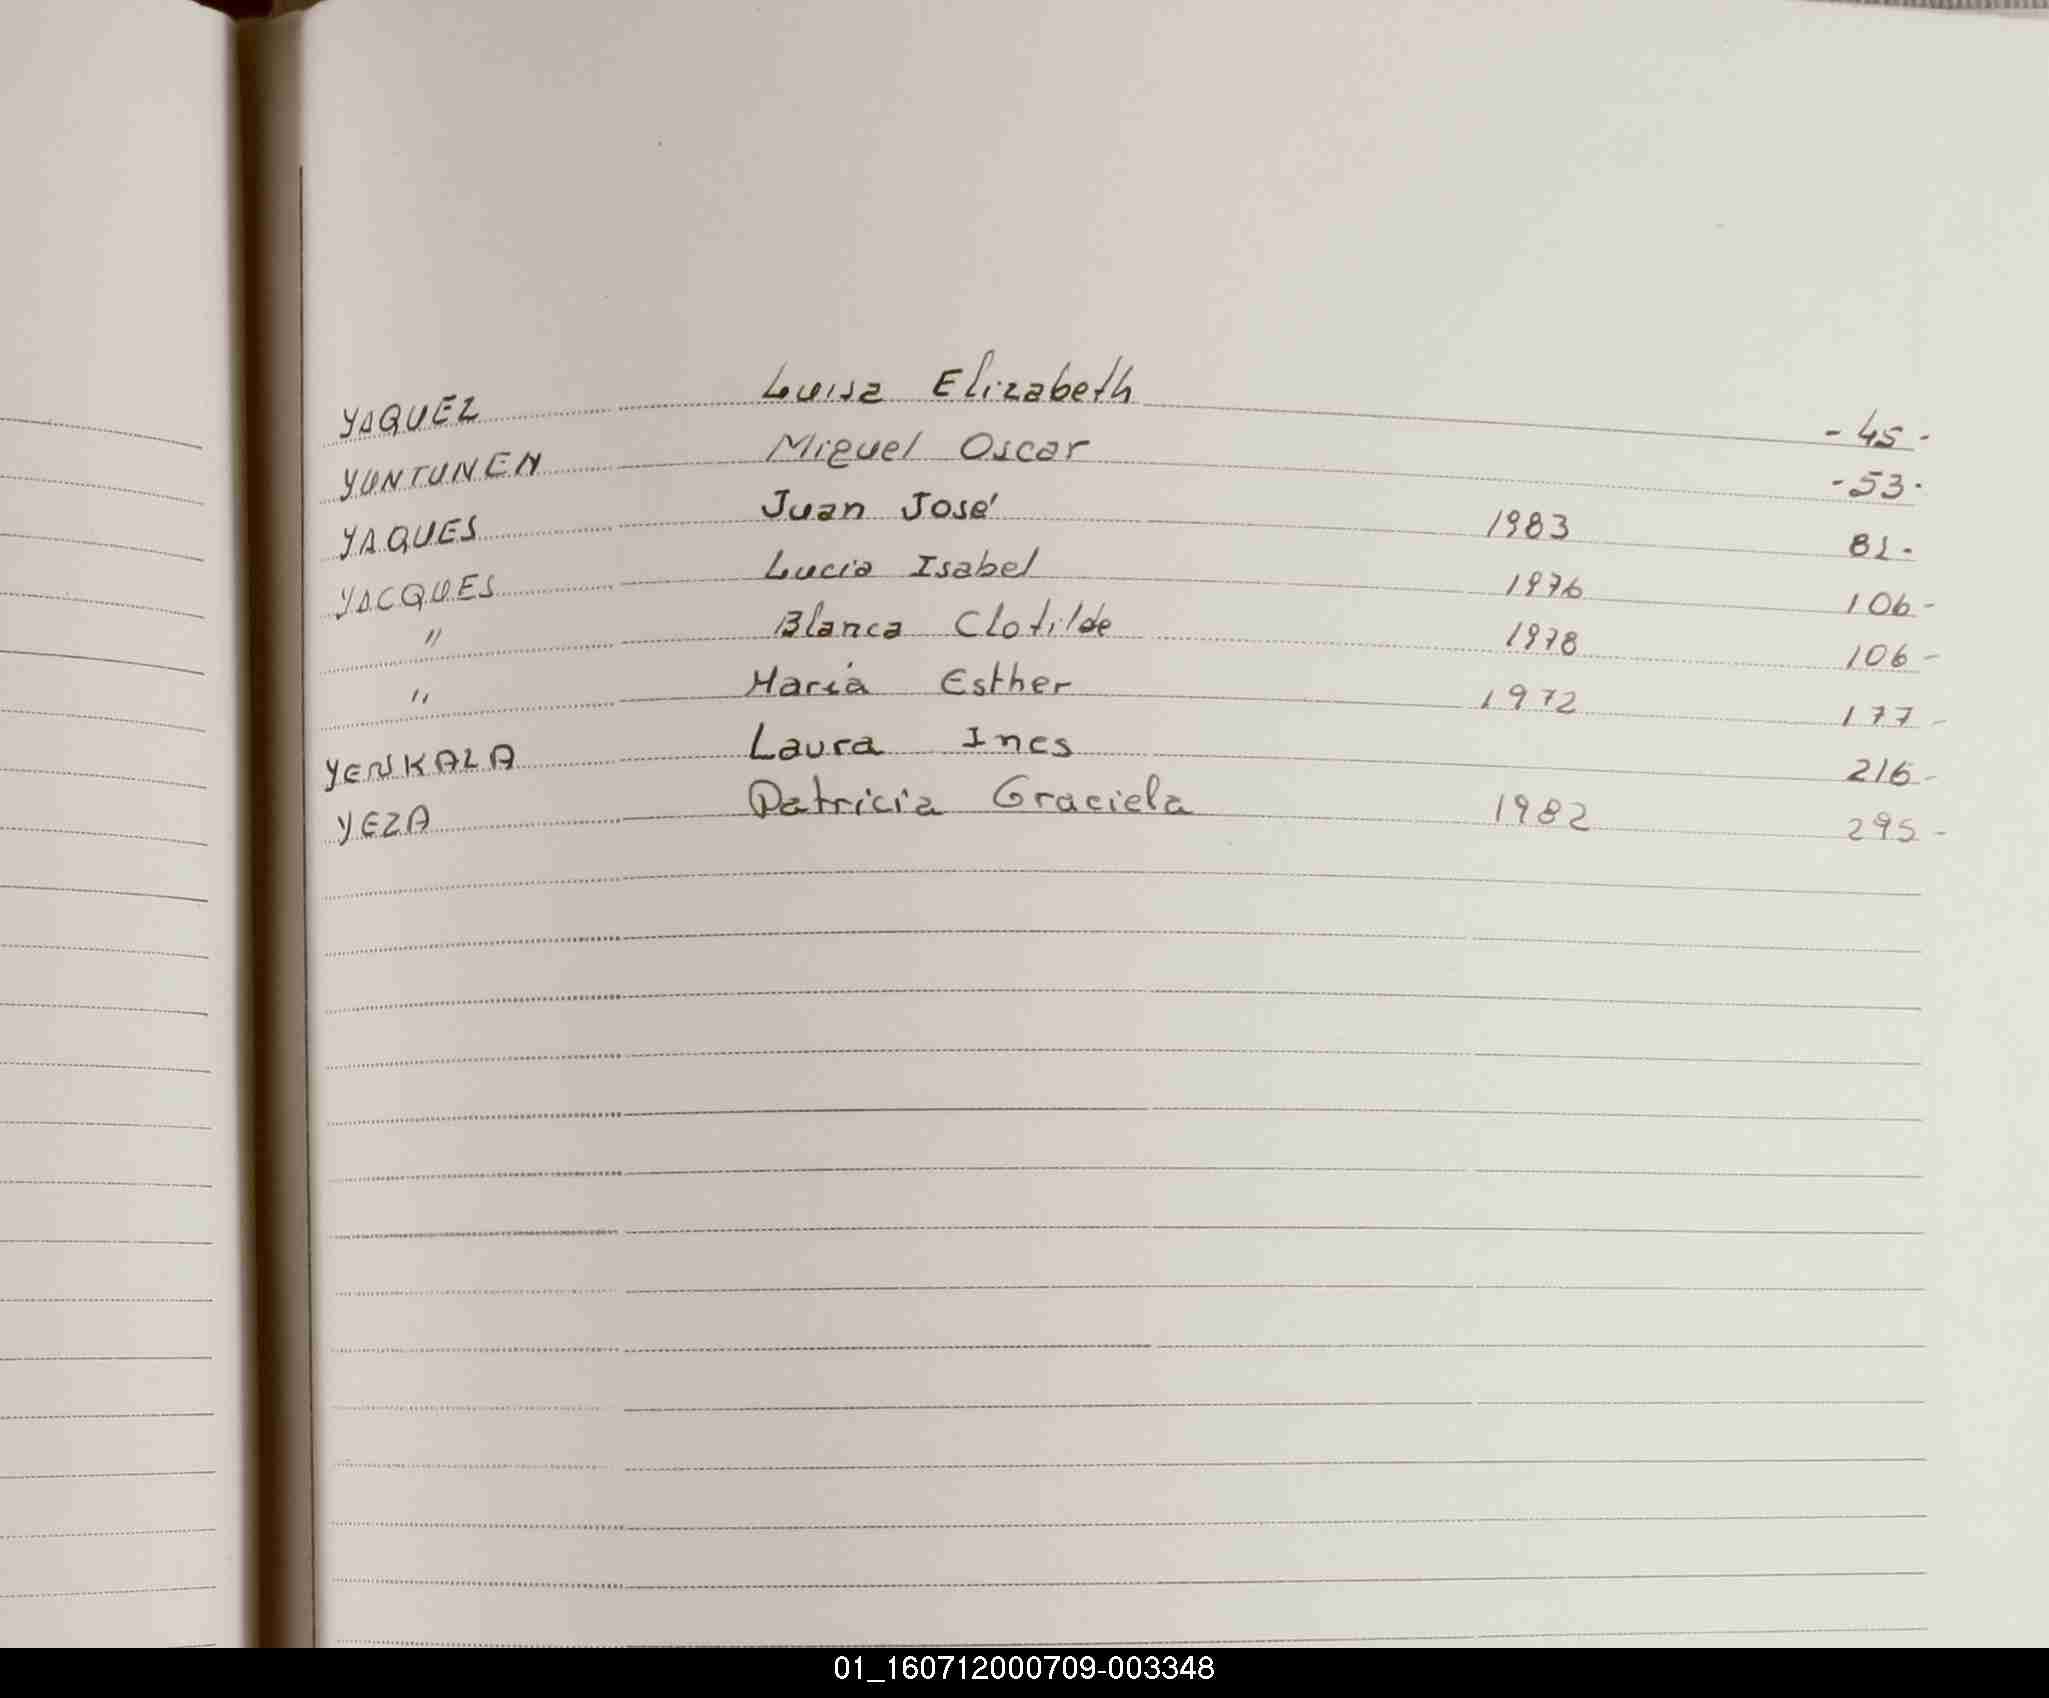 YAQUEZ Luisa Elizabeth - 45 -
YUNTUNEN Miguel Oscar - 53 -
YAQUES Juan José 1983 81 -
YACQUES Lucia Isabel 1976 106 -
" Blanca Clotilde 1978 106 -
" Maria Esther 1972 177 -
YENSKALA Laura Ines 216 -
YEZA Patricia Graciela 1982 295 -
01_160712000709-003348